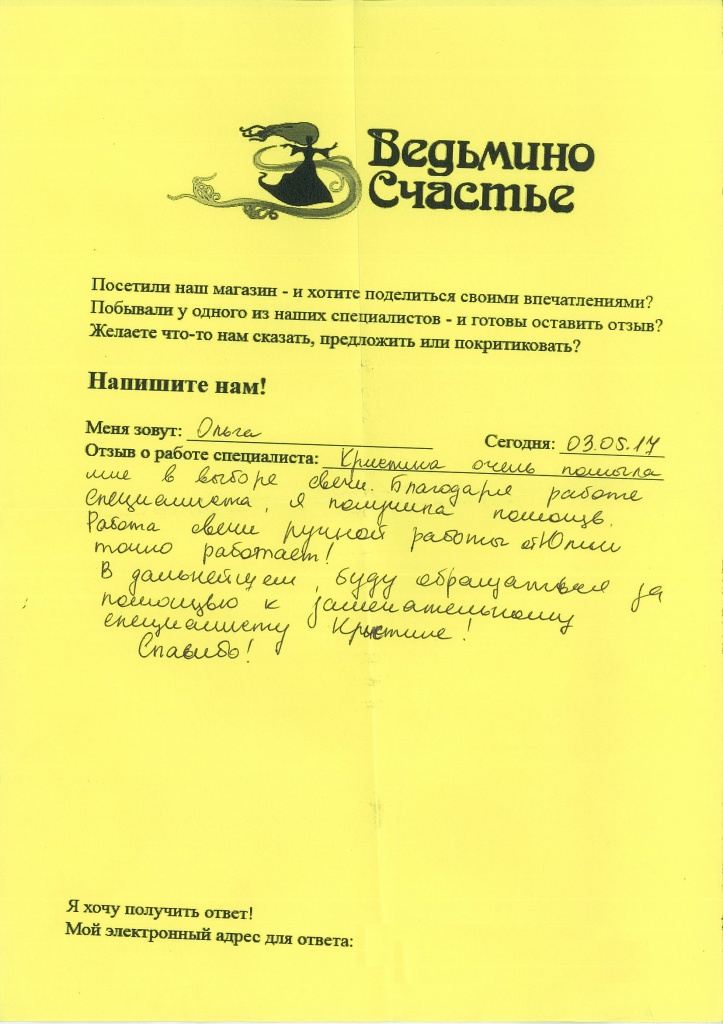 Ведьмино
Счастье
Посетили наш магазин - и хотите поделиться своими впечатлениями?
Побывали у одного из наших специалистов - и готовы оставить отзыв?
Желаете что-то нам сказать, предложить или покритиковать?
Напишите нам!
Меня зовут: Ольга Сегодня: 03.05.17
Отзыв о работе специалиста: Кристина очень помогла
мне в выборе свечи. Благодаря работе
специалиста, я получила помощь.
Работа свечи ручной работы от Юлии
точно работает!
В дальнейшем, буду обращаться за
помощью к замечательному
специалисту Кристине!
Спасибо!
Я хочу получить ответ!
Мой электронный адрес для ответа: